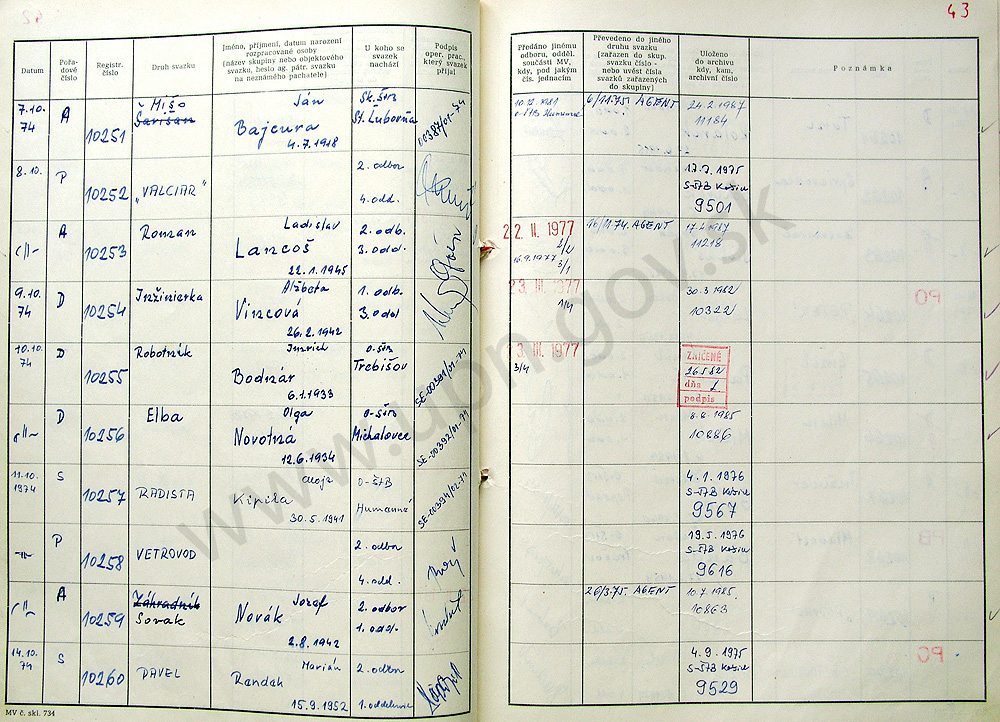 43
Datum
Pořadové číslo
Registr. číslo
Druh svazku
Jméno, příjmení, datum narození rozpracované osoby (název skupiny nebo objektového svazku, heslo ag. pátr. svazku na neznámého pachatele)
U koho se svazek nachází
Podpis oper. prac., který svazek přijal
Předáno jinému odboru, odděl. součásti MV, kdy, pod jakým čís. jednacím
Převedeno do jiného druhu svazku (zařazen do skup. svazku číslo - nebo uvést čísla svazků zařazených do skupiny)
Uloženo do archivu kdy, kam, archivní číslo
Poznámka
7.10. 74
A
10251
Mišo
Šarišan
Ján
Bajcura
4.7.1918
St. Ľubovňa
6/11.75. AGENT
24.2.1987
11184
8.10.
P
10252
"VALČIAR"
2. odbor
4. odd.
S-ŠTB Košice
9501
A
10253
Roman
Ladislav
Lancoš
22.1.1945
2. odb.
3. odd.
22. II. 1977
16.9.1977
3/1
AGENT
11218
9.10. 74
D
10254
Inžinierka
Alžbeta
Vincová
26.2.1942
1. odb.
3. odd
23. III. 1977
1/4
30.3.1982
10322
10.10. 74
D
10255
Robotník
Bodnár
6.1.1933
O-ŠTB
Trebišov
SE-00391/01-74
3. III. 1977
3/4
ZNIČENÉ
dňa
podpis
D
10256
Elba
Oľga
Novotná
12.6.1934
O-ŠTB
Michalovce
SE-00392/01-74
10886
11.10. 1974
S
10257
RADISTA
Kipiľa
30.5.1941
O-ŠTB
Humenné
4.1.1976
S-ŠTB Košice
9567
P
10258
VETROVOD
2. odbor
4. odd.
19.5.1976
S-ŠTB Košice
9616
A
10259
Záhradník
Jozef
Novák
2.8.1942
2. odbor
1. odd.
26/3.75. AGENT
10.7.1985.
10863
14.10. 74
S
10260
PAVEL
Marián
Randak
15.9.1952
2. odbor
1. oddelenie
4.9.1975
S-ŠTB Košice
9529
MV č. skl. 734
www.upn.gov.sk